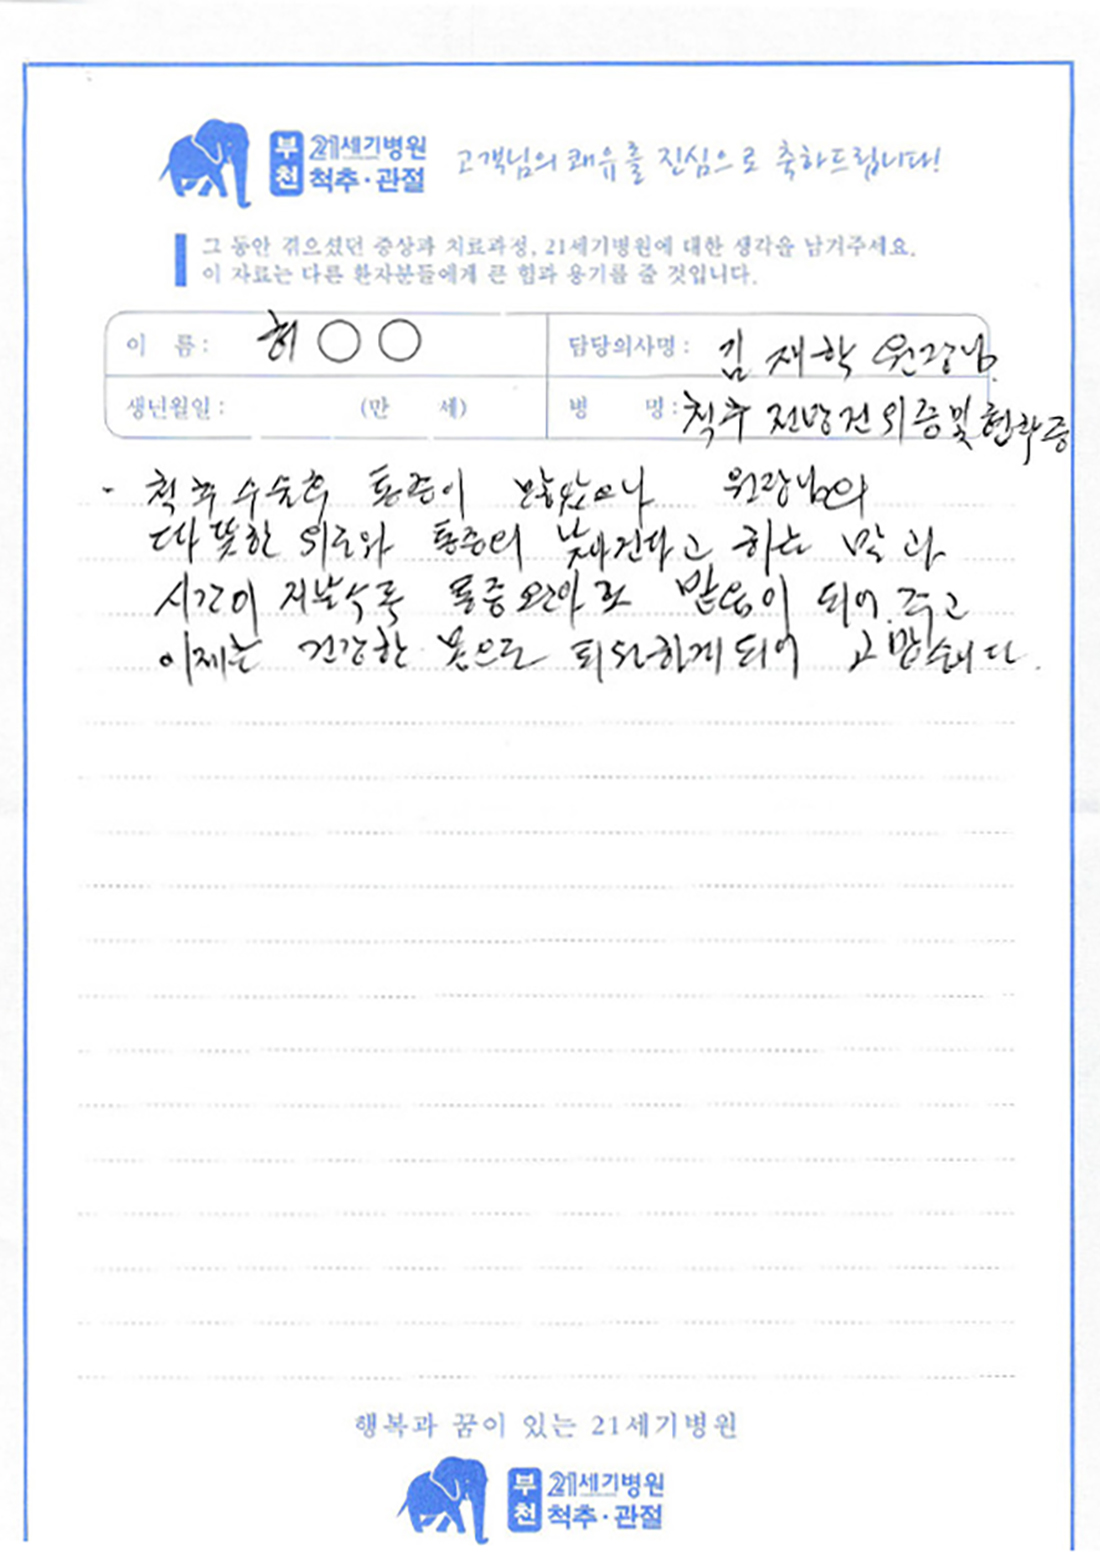 부천 21세기병원 척추·관절 고객님의 쾌유를 진심으로 축하드립니다!
그 동안 겪으셨던 증상과 치료과정, 21세기병원에 대한 생각을 남겨주세요.
이 자료는 다른 환자분들에게 큰 힘과 용기를 줄 것입니다.
이 름 : 허 ○ ○ 담당의사명 : 김재학 원장님.
생년월일 : (만 세) 병 명 : 척추 전방전위증 및 협착증
- 척추 수술후 통증이 많았으나 원장님의
따뜻한 의료와 통증이 낳아진다고 하는 말과
시간이 지날수록 통증완아로 믿음이 되어 주고
이제는 건강한 몸으로 퇴원하게되어 고맙습니다.
행복과 꿈이 있는 21세기병원
부천 21세기병원 척추·관절